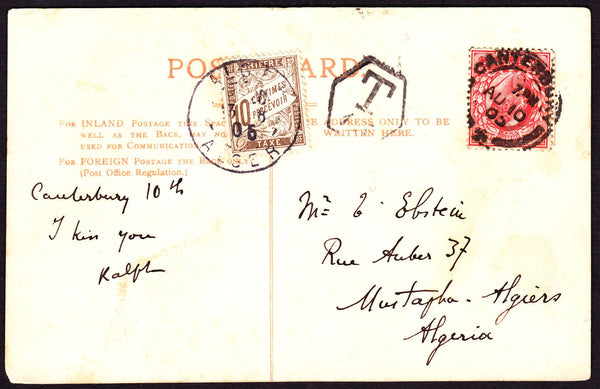 POST CARD.
For INLAND Postage this Spac THE ADDRESS ONLY TO BE
WELL AS THE BACK, MAY NO WRITTEN HERE.
USED FOR COMMUNICATION
For FOREIGN Postage the Back only.
(Post Office Regulation.)
CHIFFRE
10 CENTIMES
À PERCEVOIR
TAXE
ALGER
T
CANTERBURY
AU 10
Canterbury 10th
I kiss you
Ralph
Me E. Ebstein
Rue Auber 37
Mustapha - Algiers
Algeria